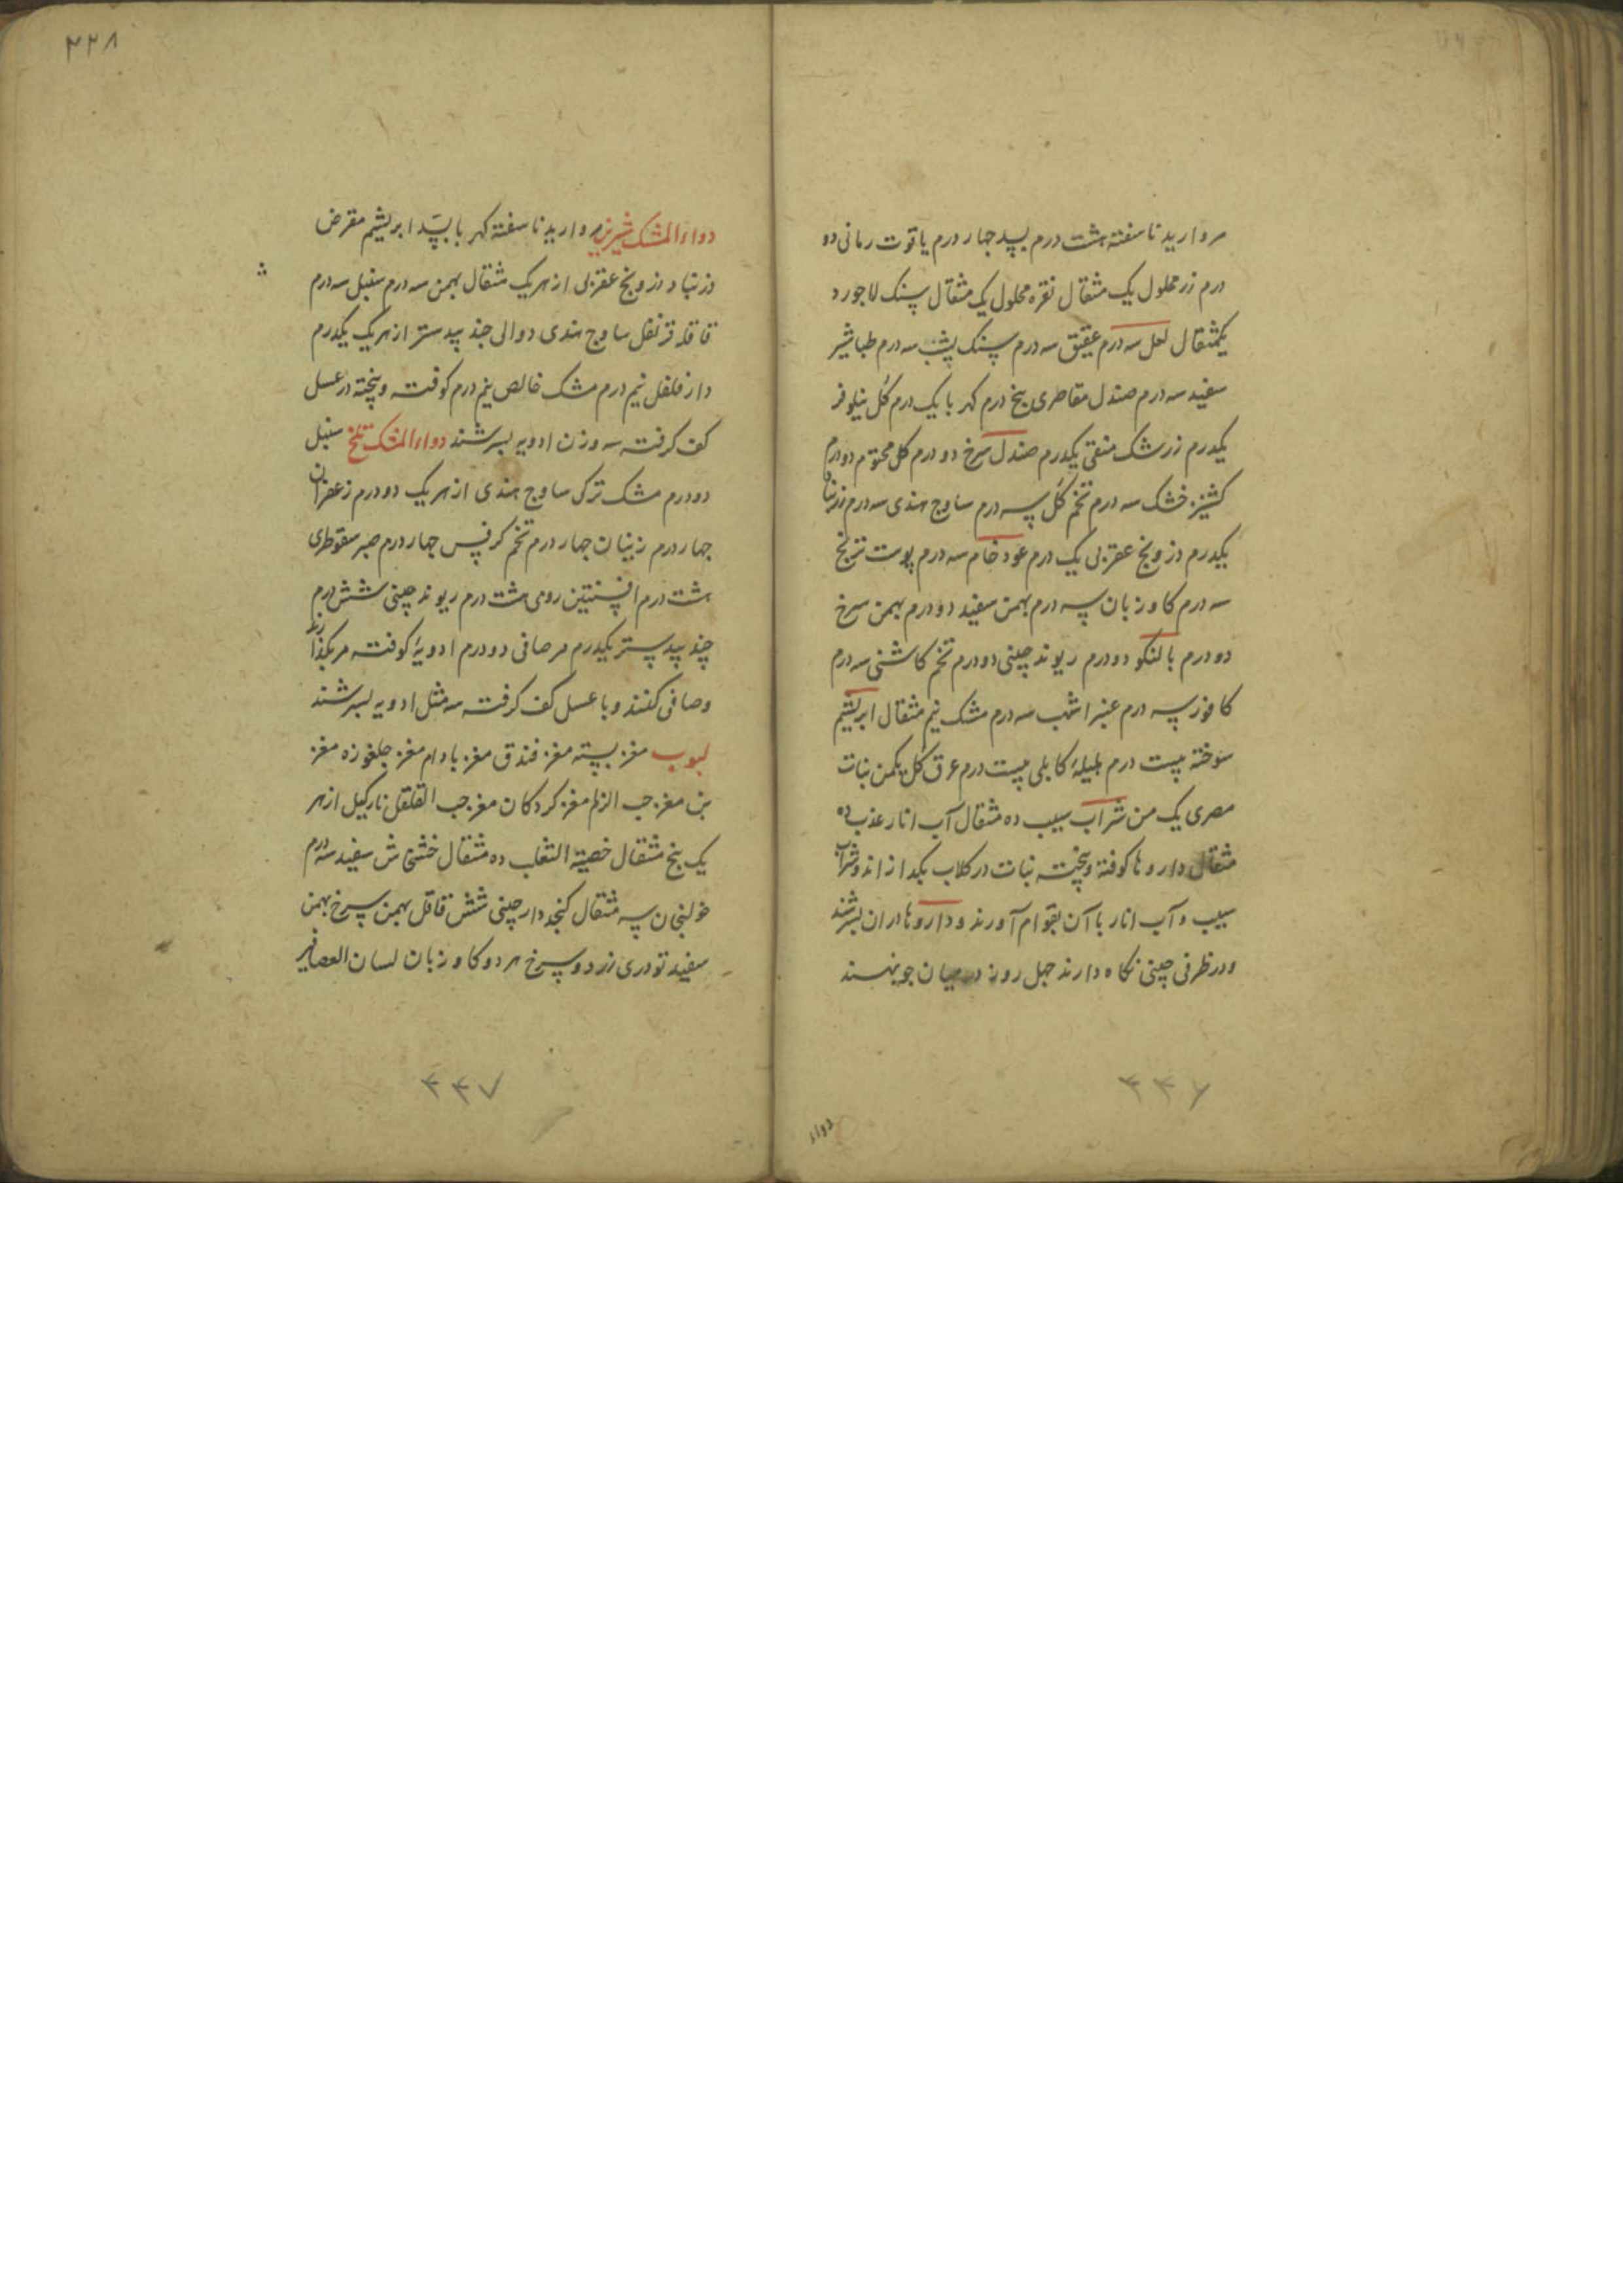 مروارید ناسفته هشت درم بسد چهار درم یاقوت رمانی دو
درم زر محلول یک مثقال نقره محلول یک مثقال سنک لاجورد
یکمثقال لعل سه درم عقیق سه درم سنک یشب سه درم طباشیر
سفید سه درم صندل مقاصری پنج درم کهربا یک درم کل نیلوفر
یکدرم زرشک منقی یکدرم صندل سرخ دو درم کل مختوم دو درم
کشنیز خشک سه درم تخم کل سه درم ساوج هندی سه درم زرنباد
یکدرم درونج عقربی یک درم عود خام سه درم پوست ترنج
سه درم کاوزبان سه درم بهمن سفید دو درم بهمن سرخ
دو درم بالنکو دو درم ریوند چینی دو درم تخم کاشنی سه درم
کافور سه درم عنبر اشهب سه درم مشک نیم مثقال ابریشم
سوخته بیست درم هلیلهٔ کابلی بیست درم عرق کل یکمن نبات
مصری یک من شراب سیب ده مثقال آب انار عذب ده
مثقال داروها کوفته و بیخته نبات در کلاب بکدازاند و شراب
سیب و آب انار با آن بقوام آورند و داروها دران بسرشند
و در ظرفی چینی نکاه دارند چهل روز در میان جو نهند
۳۳۶
دواء
۲۲۸
دواء المشک شیرین مروارید ناسفته کهربا بسد ابریشم مقرض
زرنباد درونج عقربی از هر یک مثقال بهمن سه درم سنبل سه درم
قاقله قرنفل ساوج هندی دوالی جند بیدستر از هر یک یکدرم
دارفلفل نیم درم مشک خالص نیم درم کوفته و بیخته در عسل
کف کرفته سه وزن ادویه بسرشند دواء المشک تلخ سنبل
دودرم مشک ترکی ساوج هندی از هر یک دو درم زعفران
چهار درم زینان چهار درم تخم کرفس چهار درم صبر سقوطری
هشت درم افسنتین رومی هشت درم ریوند چینی شش درم
جند بیدستر یکدرم مر صافی دو درم ادویهٔ کوفته مر بکدازند
و صافی کنند و با عسل کف کرفته سه مثل ادویه بسرشند
لبوب مغز پسته مغز فندق مغز بادام مغز جلغوزه مغز
بن مغز حب الزلم مغز کردکان مغز حب القلقل نارکیل از هر
یک پنج مثقال خصیة الثعلب ده مثقال خشخاش سفید سه درم
خولنجان سه مثقال کنجد دارچینی شش قاقل بهمن سرخ بهمن
سفید تودری زرد و سرخ هر دو کاوزبان لسان العصافیر
۳۳۷